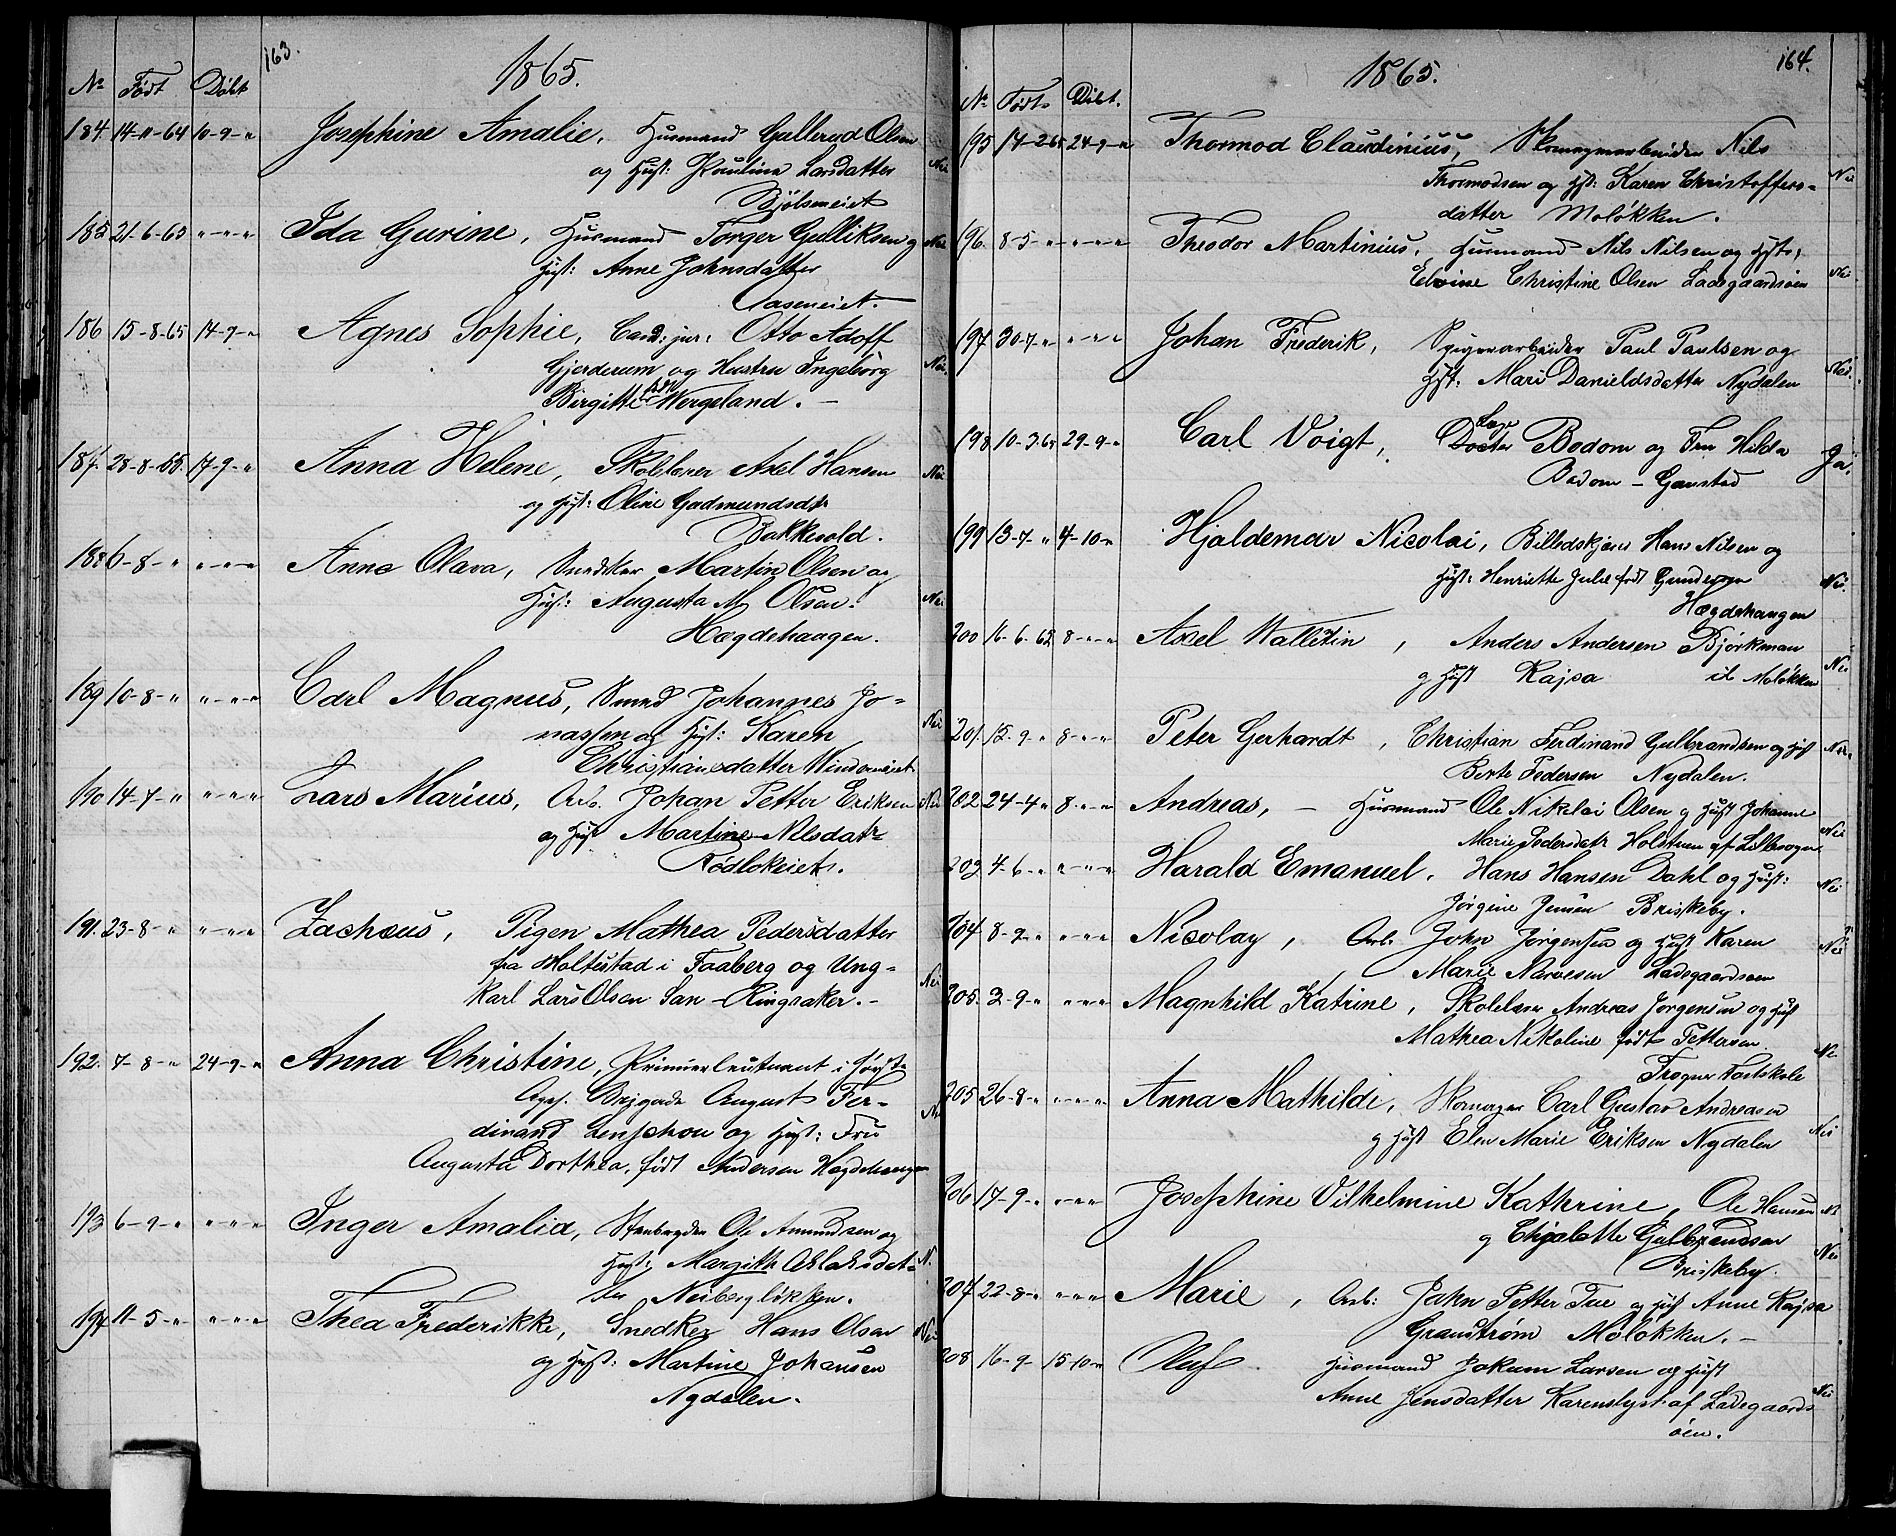 163.
1865.
No Født Døbt
184 14-11-64 10-9-" Josephine Amalie, Husmand Gulbrand Olsen
og Hust: Paulina Larsdatter Nei
Bjølseneiet
185 21-6-65 "-"-" Ida Gurine, Husmand Torger Gulliksen og Nei
Hust: Anne Johnsdatter
Aaseneiet.
186 15-8-65 14-9-" Agnes Sophie, Cand: jur: Otto Adolf
Gjerdrum og Hustru Ingeborg Nei.
Birgitte Wergeland. -
187. 28-8-65. 17-9-" Anna Helene, Skolelærer Axel Hansen Nei
og Hust: Oline Gudmundsdtr
Bakkevold.
188 6-8-" "-"-" Anne Olava, Snedker Martin Olsen og
Hust: Augusta M. Olsen. Nei
Hægdehaugen.
189 10-8-" "-"-" Carl Magnus, Smed Johannes Jo-
nassen og Hust: Karen Nei
Christiansdatter Vinderneiet
190 14-7-" "-"-" Lars Marius, Arb. Johan Petter Eriksen Nei
og Hust Martine Nilsdatr
Rødløkeiet.
191. 23-8-" "-"-" Zachæus, Pigen Mathea Pedersdatter
fra Holtestad i Faaberg og Ung-
karl Lars Olsen San - Ringsaker. - Nei
192. 7-8-" 24-9-" Anna Christine, Primierleutnant i første
Agsh. Brigade August Fer-
dinand Lenschow og Hust: Fru
Augusta Dorthea, født Andersen Hægdehaugen
193 6-9-" "-"-" Inger Amalia, Stenbryder Ole Amundsen og
Hust: Margith Aslaksdat- N.
ter Neiberglökken.
194 11-5-" "-"-" Thea Frederikke, Snedker Hans Olsen Nei
og Hust: Martine Johansen
Nydalen.
164.
1865.
No Født Døbt.
195 14-2-65 24-9-" Thormod Claudinius, Skomagerarbeider Nils
Thormodsen og Hst: Karen Christoffers= Nei
datter Moløkken.
196. 8-5-" "-"-" Theodor Martinius, Husmand Nils Nilsen og Hst:
Elvine Christine Olsen Ladegaardsøen Nei
197 30-7-" "-"-" Johan Frederik, Spigerarbeider Paul Paulsen og
Hst: Mari Danieldsdatter Nydalen Nei.
198 10-3-65 29-9-" Carl Voigt, Docter Læge Bodom og Fru Hilda
Bodom - Gaustad Ja.
199 13-7-" 4-10-" Hjaldemar Nicolai, Billedskjærer Hans Nilsen og
Hust: Henriette Julie født Gundersen Nei.
Hægdehaugen
200 16-6-65 8-"-" Axel Wallentin, Anders Andersen Bjørkman
og Hust Kajsa Moløkken Nei
201. 15-9-" 8-"-" Peter Gerhardt, Christian Ferdinand Gulbrandsen og Hust Nei.
Berte Pedersen Nydalen.
202 24-4-" 8-"-" Andreas, - Husmand Ole Nikolai Olsen og Hust Johanne
Marie Pedersdatr Nei
203 4-6-" "-"-" Harald Emanuel. Hans Hansen Dahl og Hust: Nei
Jørgine Jensen Briskeby.
204 8-9-" "-"-" Nicolay, Arb. John Jørgensen og Hust Karen Nei
Marie Narvesen Ladegaardsøen
205. 3-9-" "-"-" Magnhild Katrine, Skolelærer Andreas Jørgensen og Hust
Mathea Nikoline født Pettersen Nei
Frogner Fastskole
205 26-8-" "-"-" Anna Mathilde, Skomager Carl Gustav Andreasen
og Hust Elen Marie Eriksen Nydalen Nei
206 17-9-" "-"-" Josephine Vilhelmine Kathrine, Ole Hansen
og Gulbrandsen
Briskeby. Nei
207 22-8-" "-"-" Marie, Arb: John Petter Tue og Hust Anne Kajsa
Granstrøm Moløkken. -
208 16-9- 15-10-" Oluf. Husmand Jokum Larsen og Hust
Anne Jensdatter Karenslyst af Ladegaards Nei
øen.